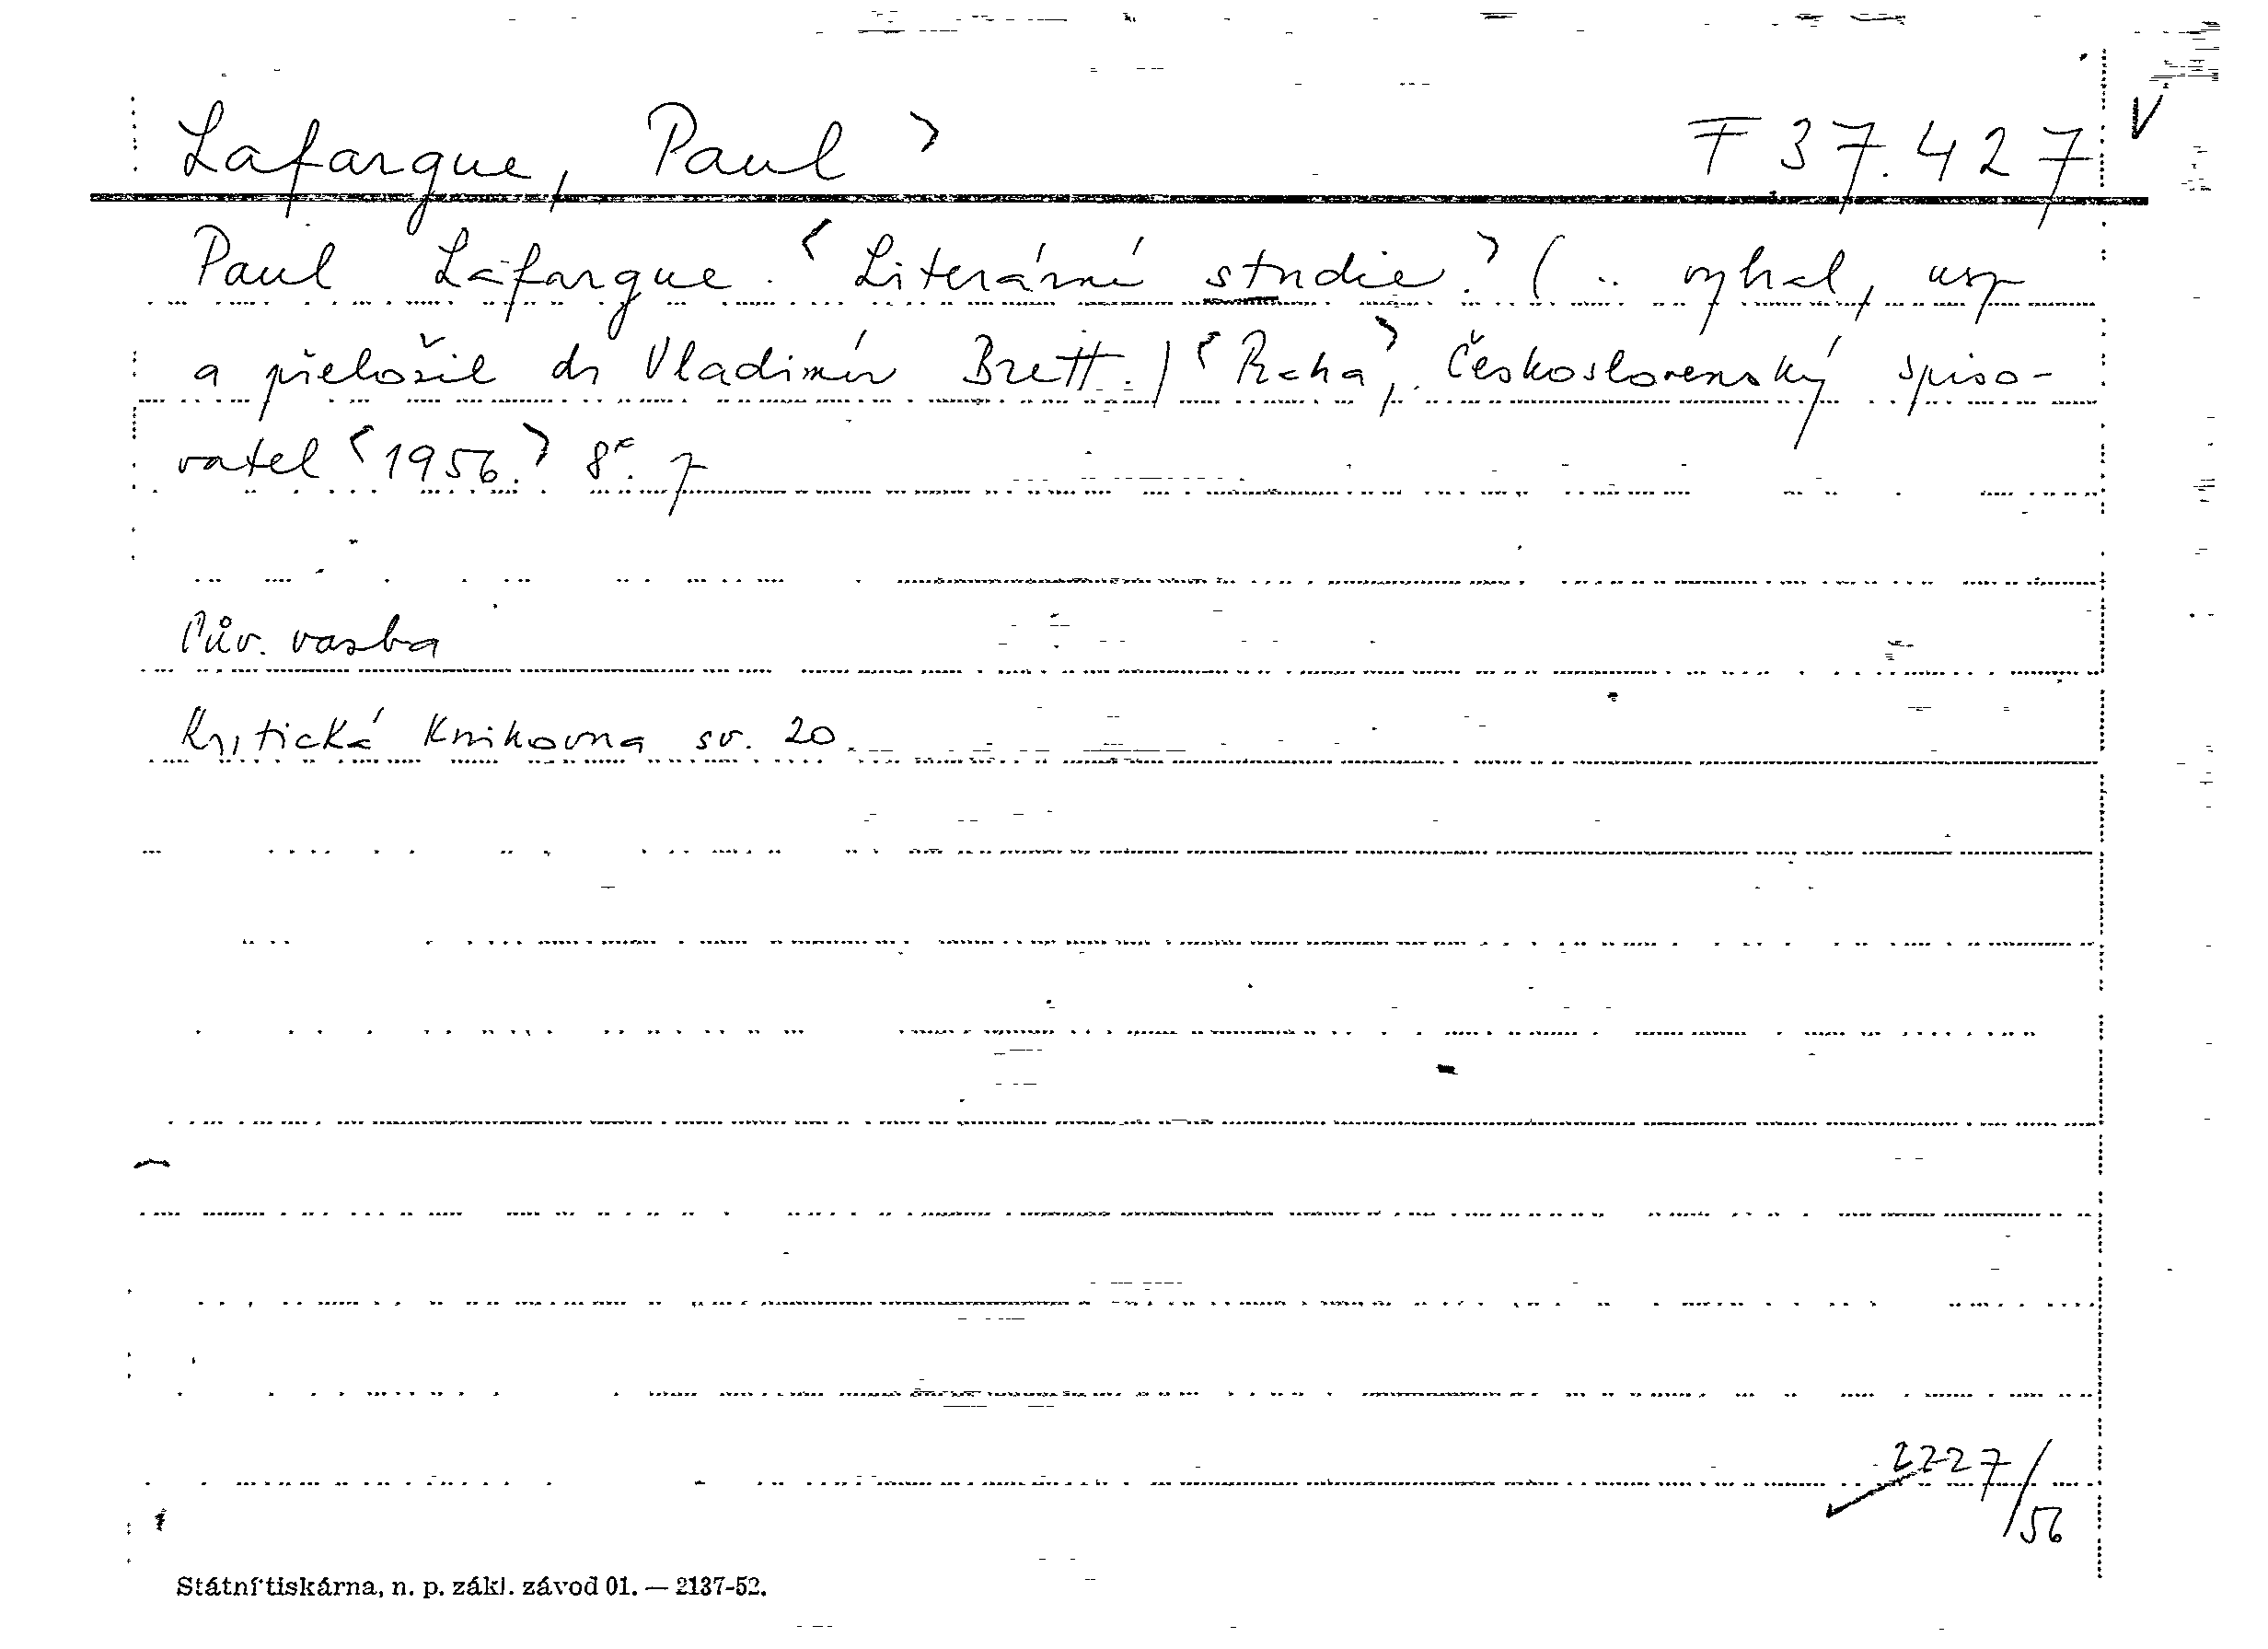 Lafargue, Paul > F 37.427 V
Paul Lafargue. <Literární studie.> (.. vybral, usp
a přeložil dr Vladimír Brett.) <Praha>, Československý spiso-
vatel <1956.> 8°.
Pův. vazba
Kritická knihovna sv. 20.
2227/56
Státní tiskárna, n. p. zákl. závod 01. — 2137-52.